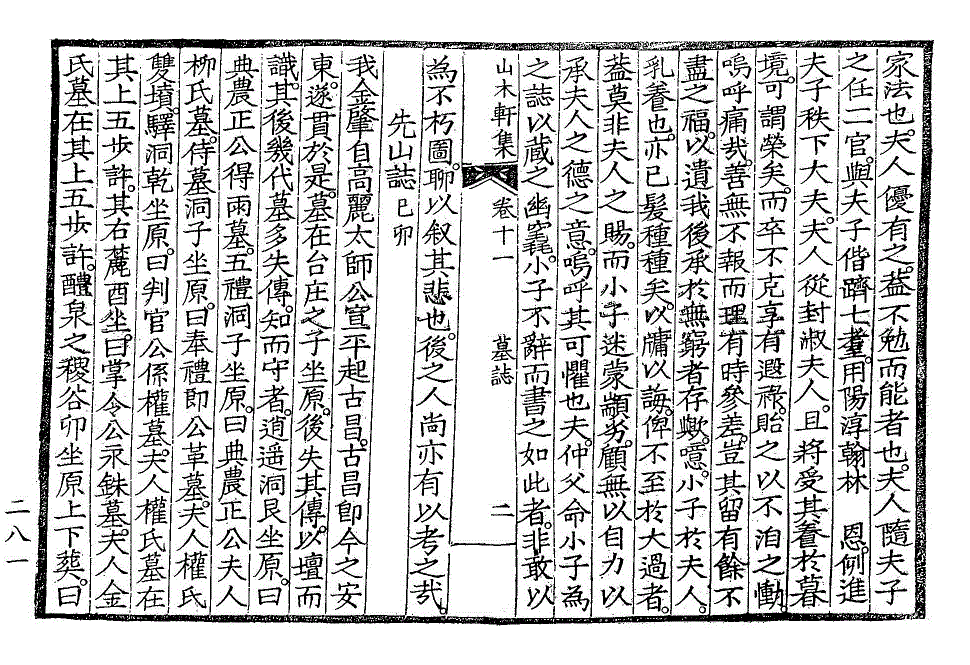 家法也。夫人優有之。盖不勉而能者也。夫人隨夫子
之任二官。與夫子偕躋七耋。用陽淳翰林 恩。例進
夫子秩下大夫。夫人從封淑夫人。且將受其養於暮
境。可謂榮矣。而卒不克享有遐祿。貽之以不洎之慟。
嗚呼痛哉。善無不報而理有時參差。豈其留有餘不
盡之福。以遺我後承於無窮者存歟。噫。小子於夫人。
乳養也。亦已髮種種矣。以牗以誨。俾不至於大過者。
盖莫非夫人之賜。而小子迷蒙顓劣。顧無以自力以
承夫人之德之意。嗚呼其可懼也夫。仲父命小子爲
之誌以藏之幽竁。小子不辭而書之如此者。非敢以
山木軒集 卷十一 墓誌 二
爲不朽圖。聊以叙其悲也。後之人尚亦有以考之哉。
先山誌 己卯
我金肇自高麗太師公宣平起古昌。古昌卽今之安
東。遂貫於是。墓在台庄之子坐原。後失其傳。以壇而
識。其後幾代墓多失傳。知而守者。逍遥洞艮坐原。曰
典農正公得雨墓。五禮洞子坐原。曰典農正公夫人
柳氏墓。侍墓洞子坐原。曰奉禮郞公革墓。夫人權氏
雙墳。驛洞乾坐原。曰判官公係權墓。夫人權氏墓在
其上五步許。其右麓酉坐。曰掌令公永銖墓。夫人金
氏墓在其上五步許。醴泉之稷谷卯坐原上下葬。曰
二八一